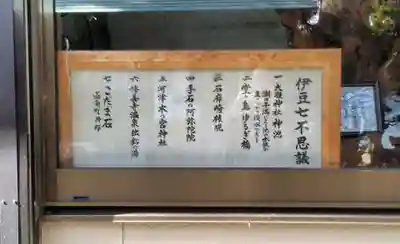 伊豆七不思議
一 大瀬神社神池
二 堂ヶ島ゆるぎ橋
三 石廊崎権現
四 手石の阿弥陀院
五 河津来の宮神社
六 修善寺温泉独鈷の湯
七 こだま石